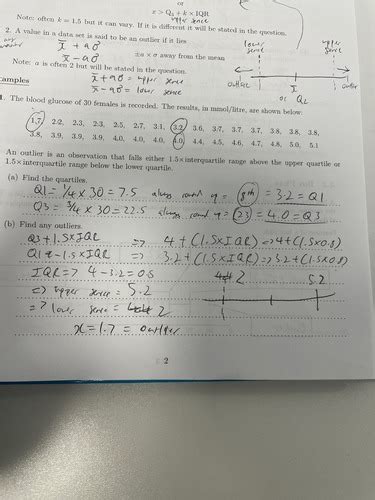 or
x > Q₃ + k × IQR
Note: often k = 1.5 but it can vary. If it is different it will be stated in the question.
upper fence
2. A value in a data set is said to be an outlier if it lies
any
x̄ + aσ
x̄ - aσ
±a × σ away from the mean
Note: a is often 2 but will be stated in the question.
x̄ + aσ = upper fence
x̄ - aσ = lower fence
lower fence
upper fence
outlier
x̄
outlier
or Q₂
Examples
1. The blood glucose of 30 females is recorded. The results, in mmol/litre, are shown below:
1.7, 2.2, 2.3, 2.3, 2.5, 2.7, 3.1, 3.2, 3.6, 3.7, 3.7, 3.7, 3.8, 3.8, 3.8,
3.8, 3.9, 3.9, 3.9, 4.0, 4.0, 4.0, 4.0, 4.4, 4.5, 4.6, 4.7, 4.8, 5.0, 5.1
An outlier is an observation that falls either 1.5×interquartile range above the upper quartile or
1.5×interquartile range below the lower quartile.
(a) Find the quartiles.
Q1 = 1/4 × 30 = 7.5 always round up = 8th = 3.2 = Q1
Q3 = 3/4 × 30 = 22.5 always round up = 23 = 4.0 = Q3
(b) Find any outliers.
Q3 + 1.5×IQR => 4 + (1.5×IQR) => 4 + (1.5×0.8)
Q1 - 1.5×IQR => 3.2 + (1.5×IQR) => 3.2 + (1.5×0.8)
IQR => 4 - 3.2 = 0.8
2
5.2
=> upper fence = 5.2
=> lower fence = 2
x = 1.7 = outlier
2